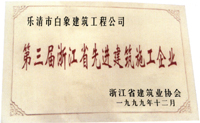 乐清市白象建筑工程公司
第三届浙江省先进建筑施工企业
浙江省建筑业协会
一九九九年十二月